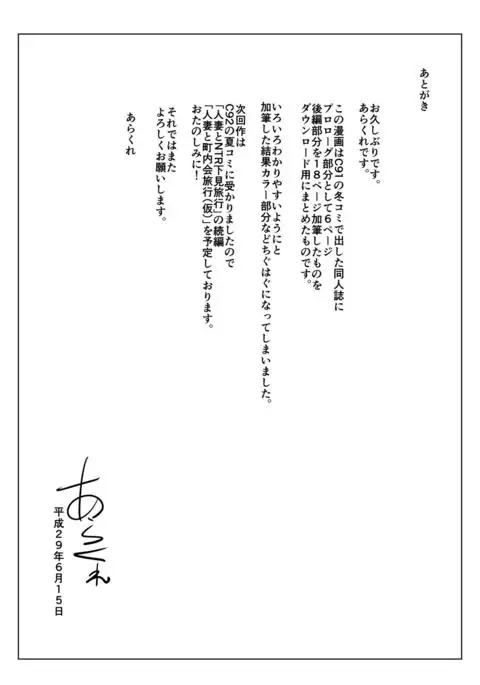 あとがき
お久しぶりです。
あらくれです。
この漫画はC91の冬コミで出した同人誌に
プロローグ部分として6ページ
後編部分を18ページ加筆したものを
ダウンロード用にまとめたものです。
いろいろわかりやすいようにと
加筆した結果カラー部分などちぐはぐになってしまいました。
次回作は
C92の夏コミに受かりましたので
「人妻とNTR下見旅行」の続編
「人妻と町内会旅行(仮)」を予定しております。
おたのしみに！
それではまた
よろしくお願いします。
あらくれ
あらくれ
平成29年6月15日